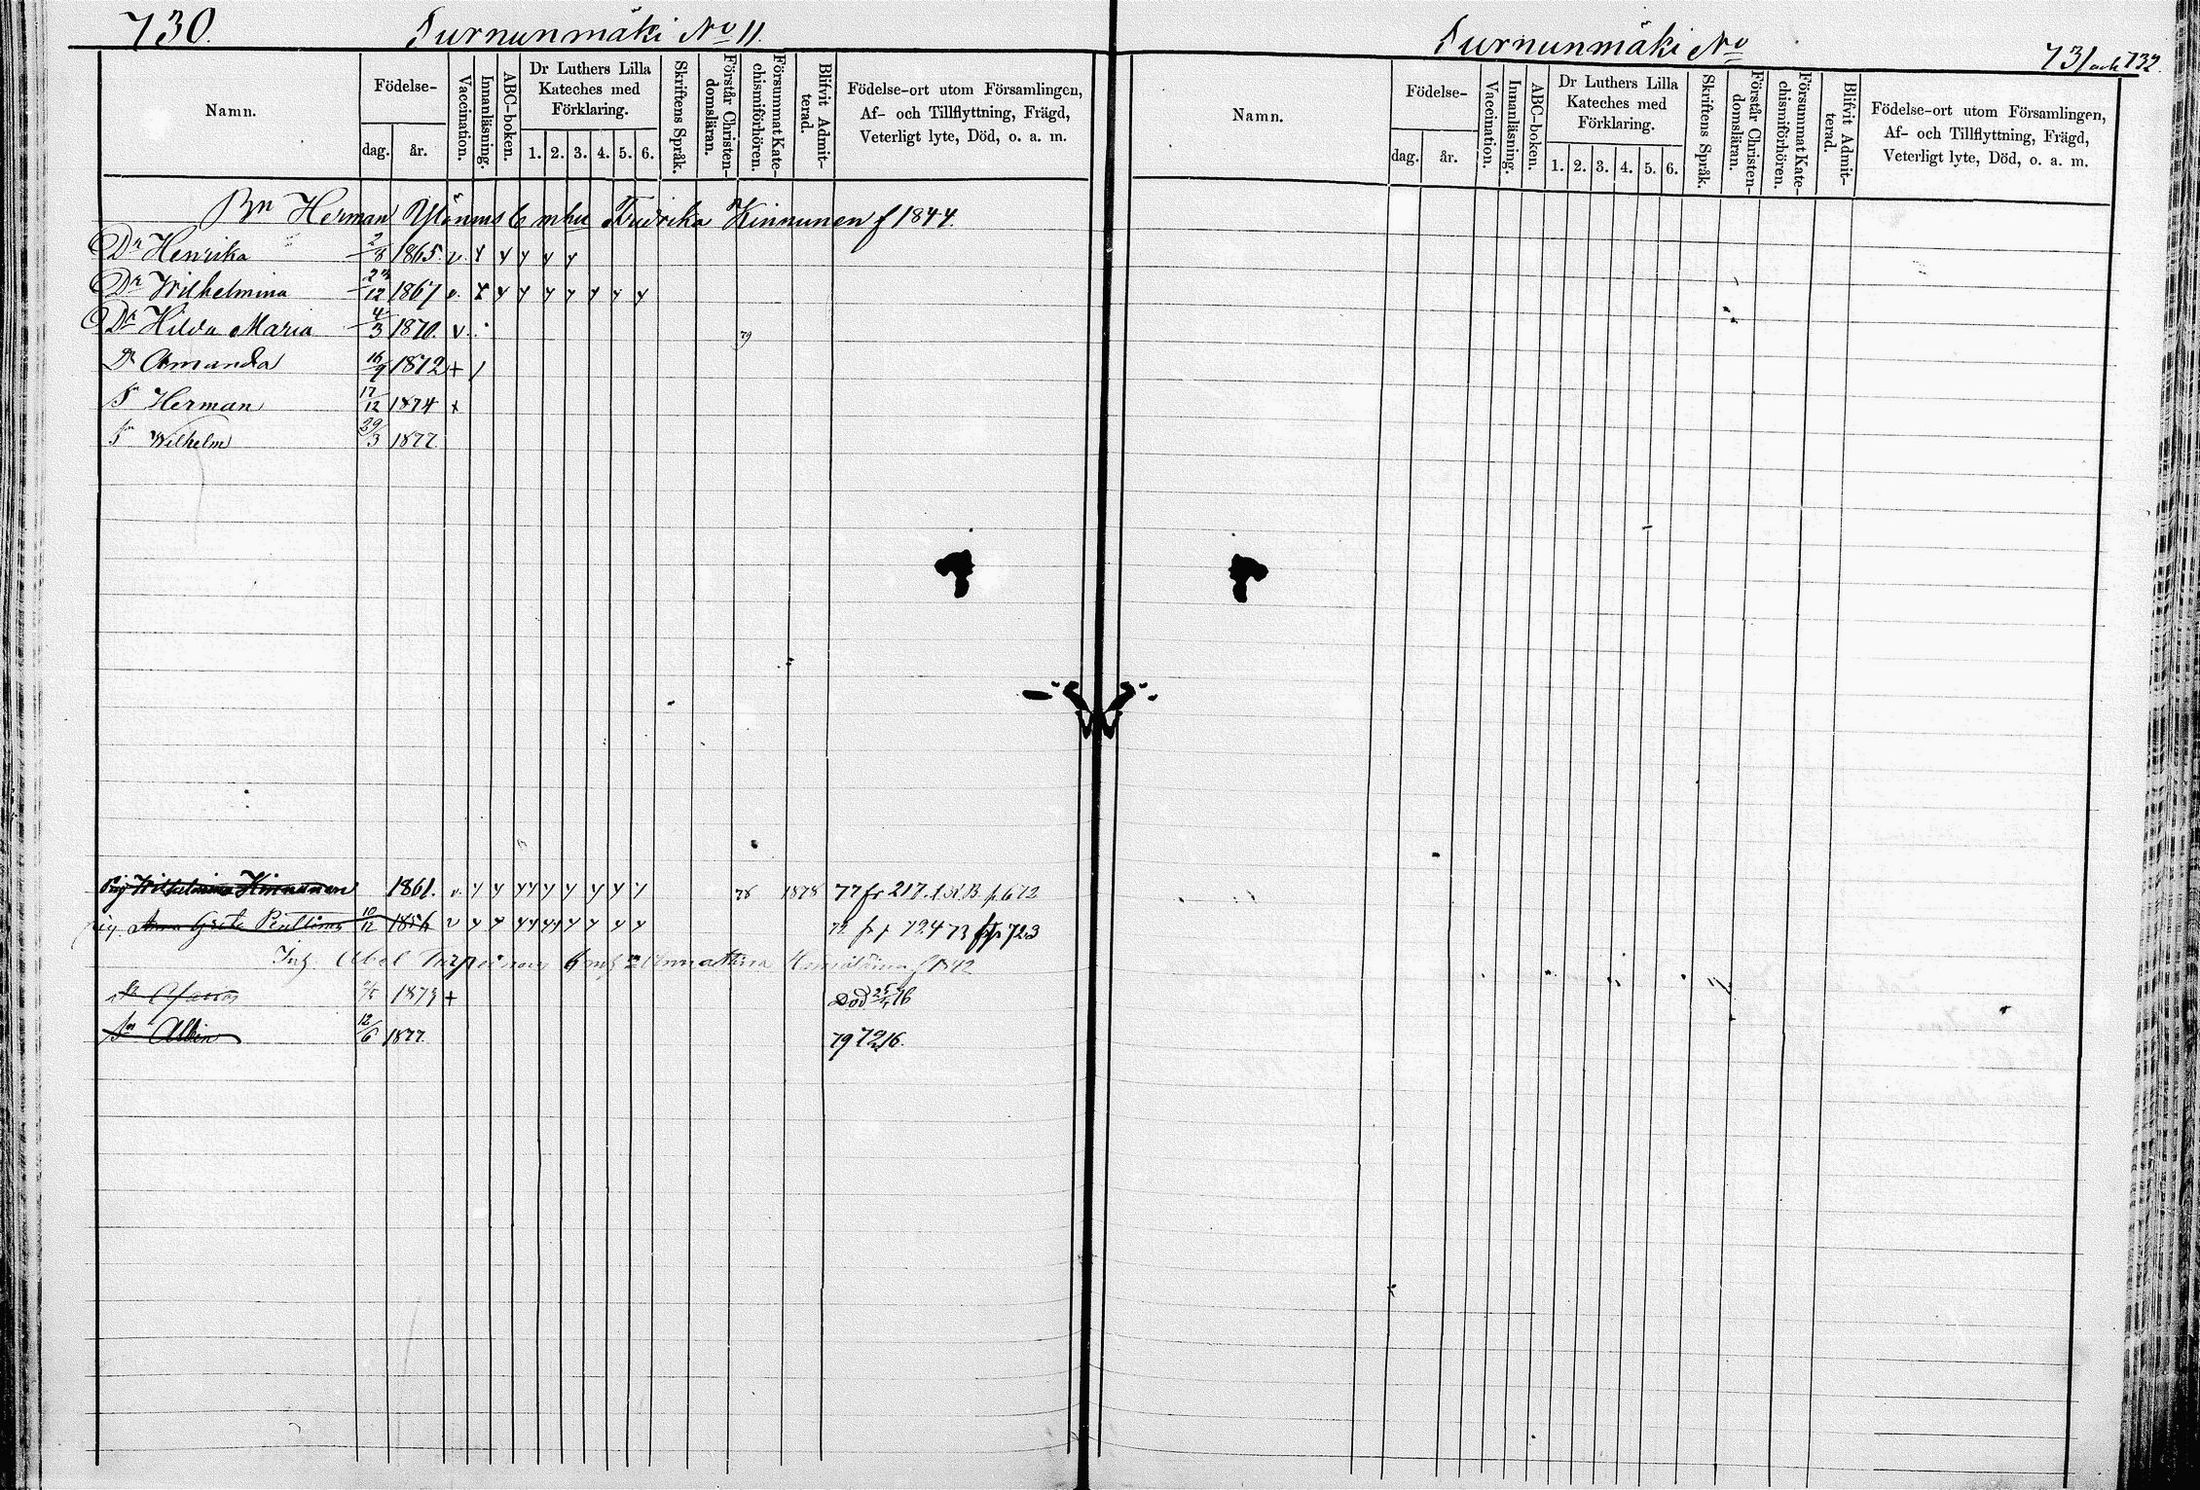 730.
Turnunmäki No 11.
Namn.
Födelse-
dag.
år.
Vaccination.
Innanläsning.
ABC-boken.
Dr Luthers Lilla
Kateches med
Förklaring.
1. 2. 3. 4. 5. 6.
Skriftens Språk.
Förstår Christen-
domsläran.
Försummat Kate-
chismiförhören.
Blifvit Admit-
terad.
Födelse-ort utom Församlingen,
Af- och Tillflyttning, Frägd,
Veterligt lyte, Död, o. a. m.
Bn Herman Ylönens Fredrika Kinnunen f 1844.
Dr Henrika 2/8 1865. v. y y y y y
Dr Wilhelmina 12 1867 v. y y y y y y y y
Dr Hilda Maria 4/3 1870. v. 79
Dr Amanda 16/9 1872 +
Sn Herman 17/12 1874 +
Sn Wilhelm 29/3 1877
Pig Wilhelmina Kinnunen 1861. v. y y y y y y y y y 78 1878 77 fr 217. p. 672
Pig. Anna Greta 10/12 1856 v y y y y y y y y y fr p 724 73 723
Abel Turpeinens f 1842
1873 + Död 25/7 76
Sn Albin 12/6 1877. 79 7216.
Turnunmäki No
731 och 732.
Namn.
Födelse-
dag.
år.
Vaccination.
Innanläsning.
ABC-boken.
Dr Luthers Lilla
Kateches med
Förklaring.
1. 2. 3. 4. 5. 6.
Skriftens Språk.
Förstår Christen-
domsläran.
Försummat Kate-
chismiförhören.
Blifvit Admit-
terad.
Födelse-ort utom Församlingen,
Af- och Tillflyttning, Frägd,
Veterligt lyte, Död, o. a. m.